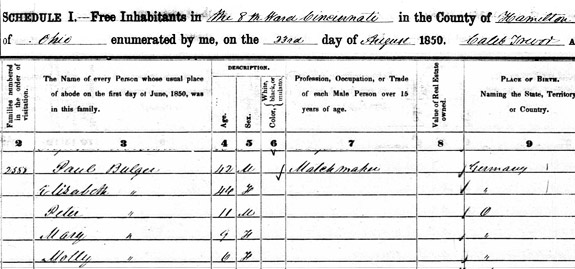 SCHEDULE I.—Free Inhabitants in the 8th Ward Cincinnati in the County of Hamilton
of Ohio enumerated by me, on the 23rd day of August 1850. Caleb Trevor
Families numbered in the order of visitation.
The Name of every Person whose usual place of abode on the first day of June, 1850, was in this family.
DESCRIPTION.
Age.
Sex.
Color, White, black, or mulatto.
Profession, Occupation, or Trade of each Male Person over 15 years of age.
Value of Real Estate owned.
PLACE OF BIRTH. Naming the State, Territory or Country.
2 3 4 5 6 7 8 9
Paul Bulger 42 M Matchmaker Germany
Elisabeth " 44 F "
Peter " 11 M O
Mary " 9 F "
Molly " 6 F "